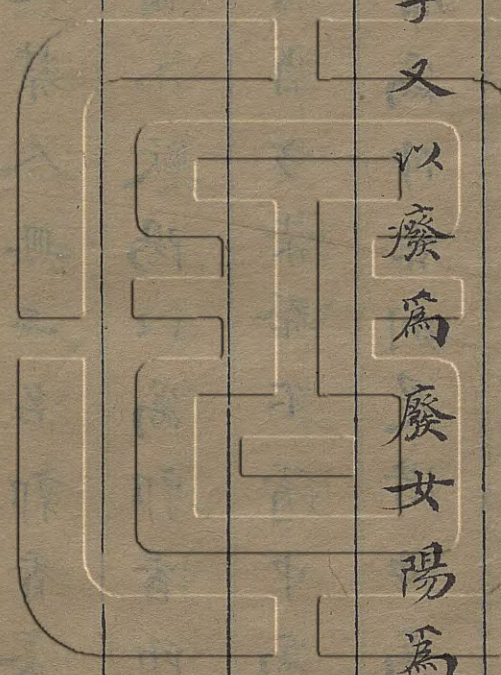 又以癈爲廢女陽爲